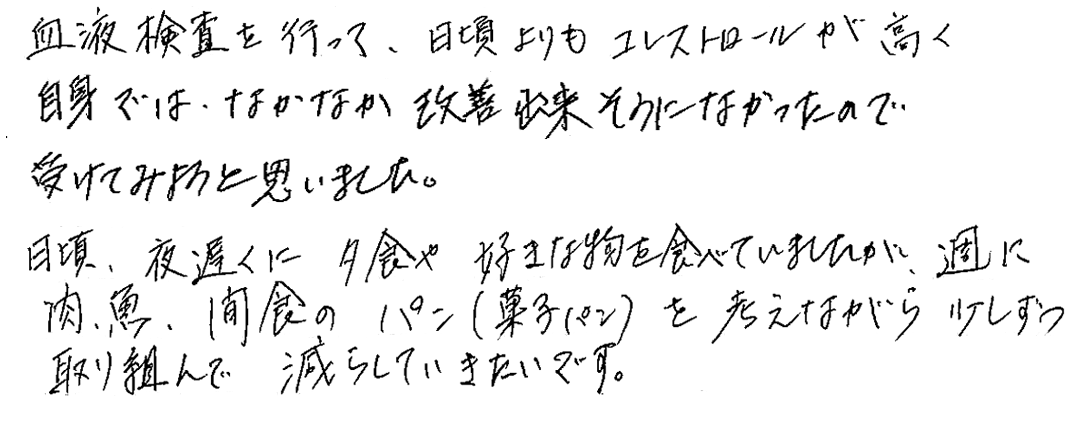 血液検査を行って、日頃よりもコレストロールが高く
自身では、なかなか改善出来そうになかったので
受けてみようと思いました。
日頃、夜遅くに夕食や好きな物を食べていましたが、週に
肉、魚、間食のパン(菓子パン)を考えながら少しずつ
取り組んで減らしていきたいです。